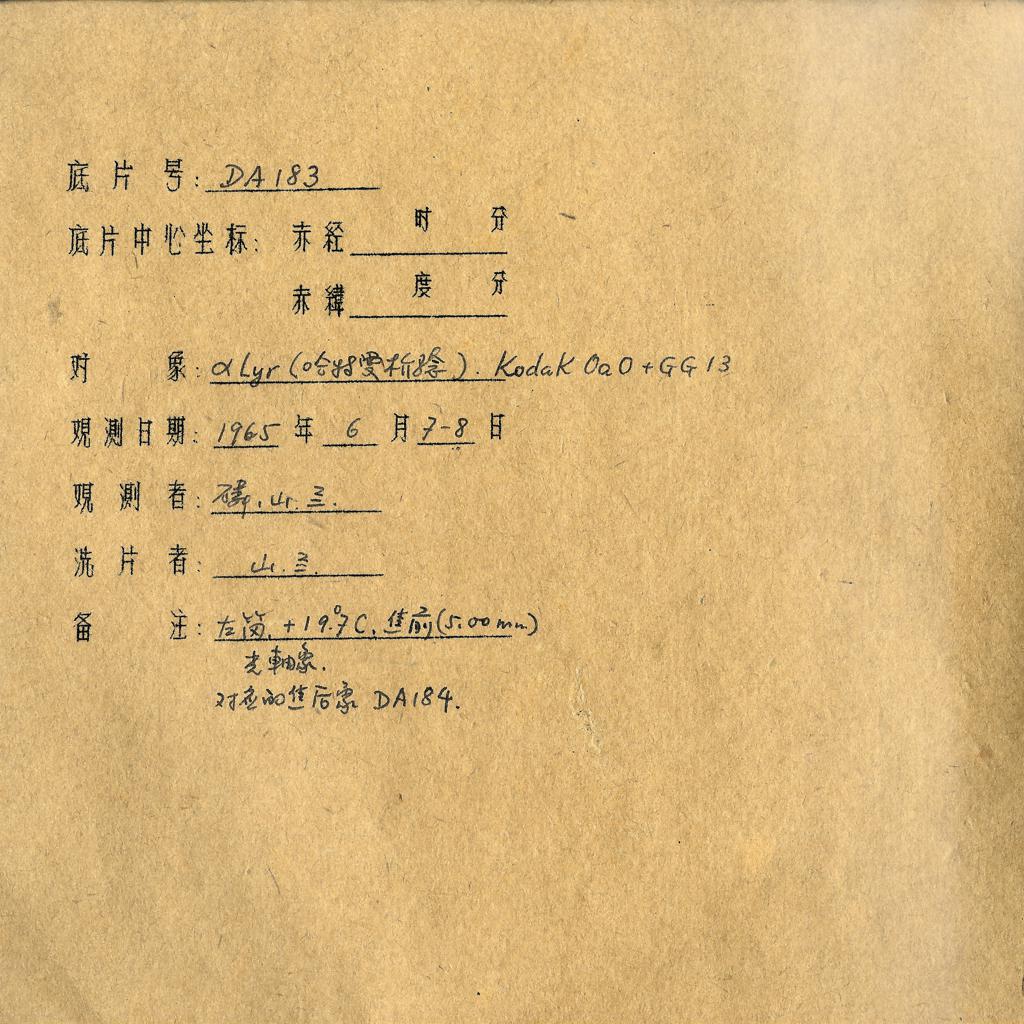 底片号: DA183
时 分
底片中心坐标: 赤经
度 分
赤緯
对象: α Lyr (哈特曼检验). Kodak OaO+GG13
观测日期: 1965年 6月 7-8日
观测者: 山. 三.
洗片者: 山. 三.
备注: 左筒, +19°.7C, 焦前(5.00mm)
光軸象.
对应的焦后象 DA184.